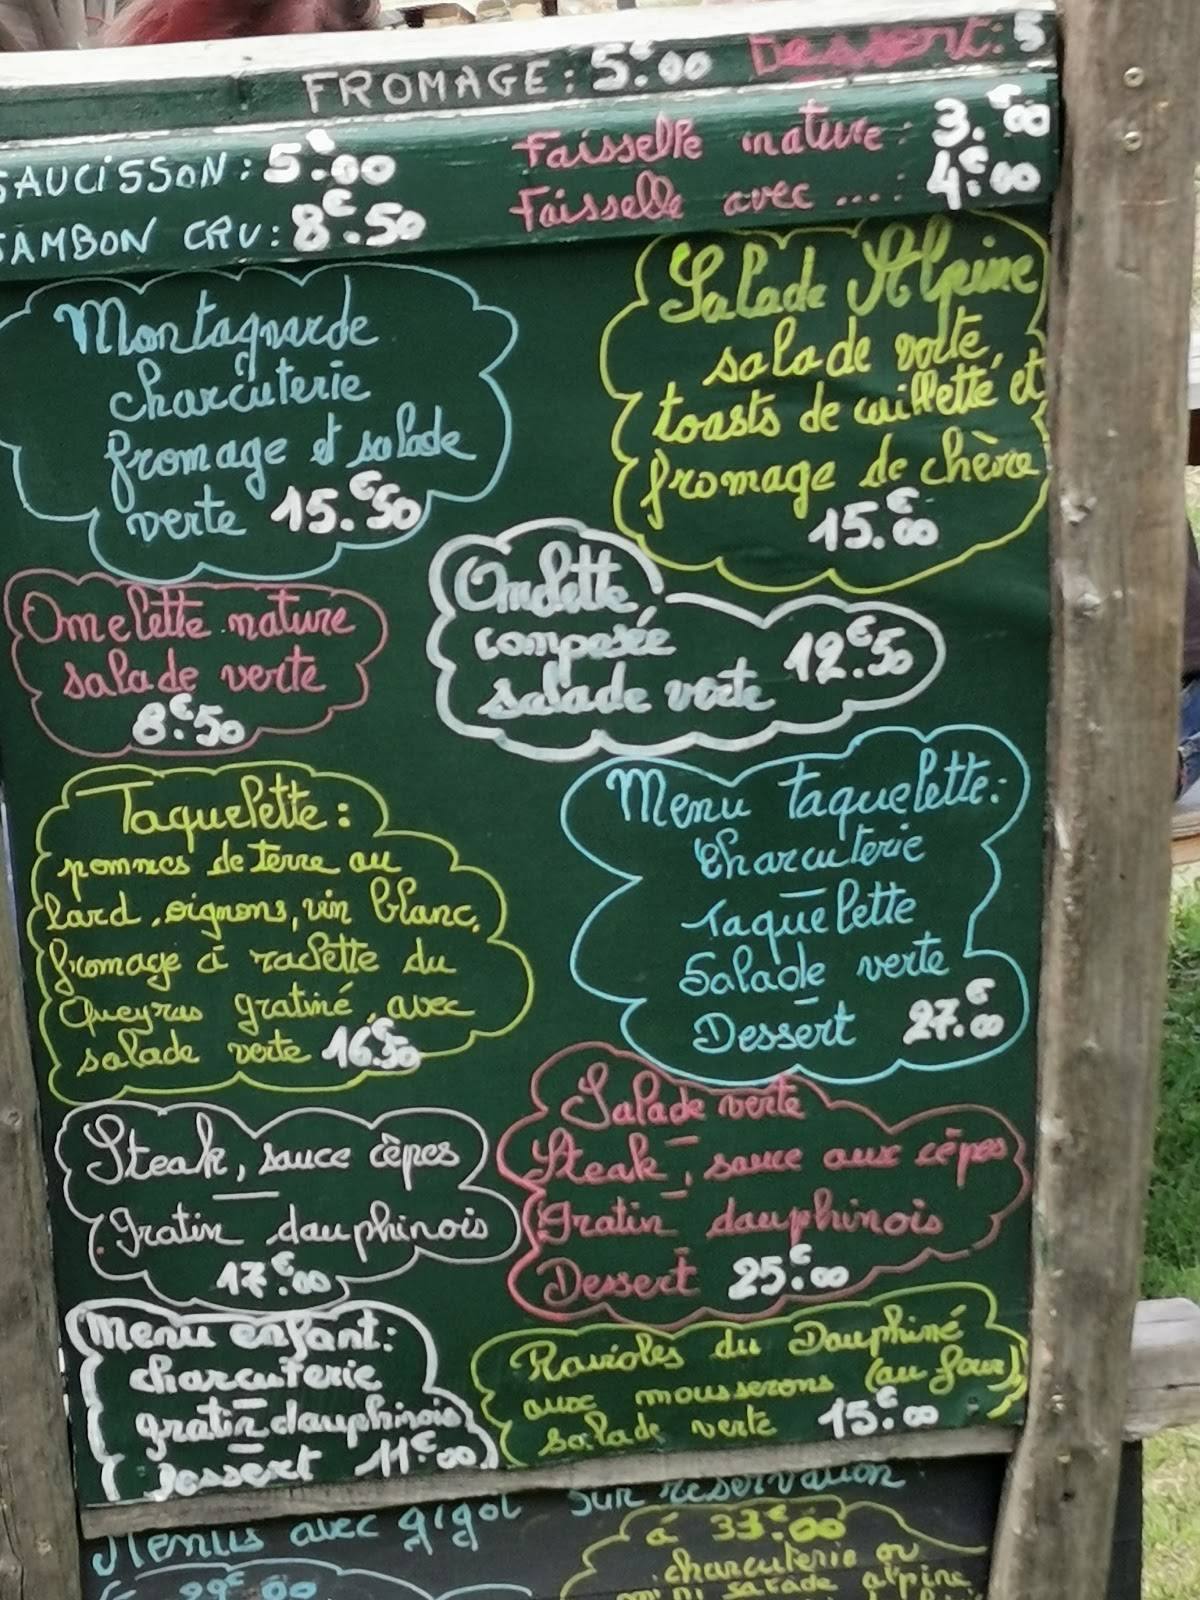 FROMAGE: 5.€00 Dessert: 5
SAUCISSON: 5.€00
JAMBON CRU: 8€.50
Faisselle nature: 3.€00
Faisselle avec ....: 4.€00
Montagnarde
charcuterie
fromage et salade
verte 15.€50
Salade Alpine
salade verte,
toasts de caillette et
fromage de chèvre
15.€00
Omelette nature
salade verte
8.€50
Omelette
composée
salade verte 12.€50
Taquelette:
pommes de terre au
lard, oignons, vin blanc,
fromage à raclette du
Queyras gratiné, avec
salade verte 16.€50
Menu taquelette:
Charcuterie
—
Taquelette
Salade verte
—
Dessert 27.€00
Steak, sauce cèpes
—
Gratin dauphinois
17.€00
Salade verte
—
Steak, sauce aux cèpes
—
Gratin dauphinois
—
Dessert 25.€00
Menu enfant:
charcuterie
—
gratin dauphinois
—
dessert 11€.00
Ravioles du Dauphiné
aux mousserons (au four)
salade verte 15.€00
Menus avec gigot sur réservation
à 33.€00
charcuterie ou
mini salade alpine
29€ 00